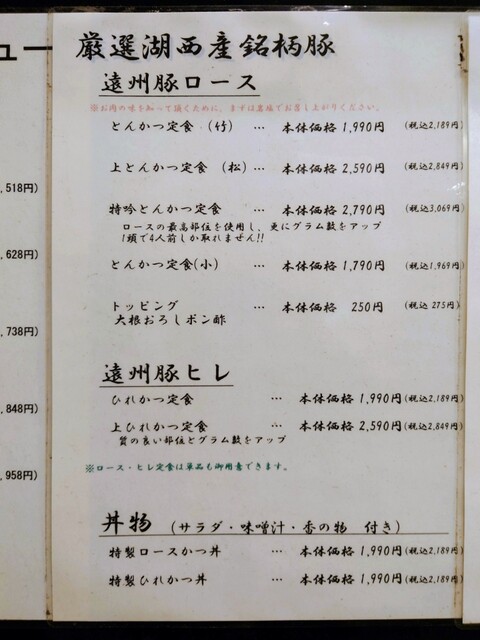 ュー
,518円)
,628円)
,738円)
,848円)
,958円)
厳選湖西産銘柄豚
遠州豚ロース
※お肉の味を知って頂くために、まずは岩塩でお召し上がりください。
とんかつ定食 (竹) … 本体価格 1,990円 (税込2,189円)
上とんかつ定食 (松) … 本体価格 2,590円 (税込2,849円)
特吟とんかつ定食 … 本体価格 2,790円 (税込3,069円)
ロースの最高部位を使用し、更にグラム数をアップ
1頭で4人前しか取れません!!
とんかつ定食(小) … 本体価格 1,790円 (税込1,969円)
トッピング … 本体価格 250円 (税込 275円)
大根おろしポン酢
遠州豚ヒレ
ひれかつ定食 … 本体価格 1,990円 (税込2,189円)
上ひれかつ定食 … 本体価格 2,590円 (税込2,849円)
質の良い部位とグラム数をアップ
※ロース・ヒレ定食は単品も御用意できます。
丼物 (サラダ・味噌汁・香の物 付き)
特製ロースかつ丼 … 本体価格 1,990円 (税込2,189円)
特製ひれかつ丼 … 本体価格 1,990円 (税込2,189円)